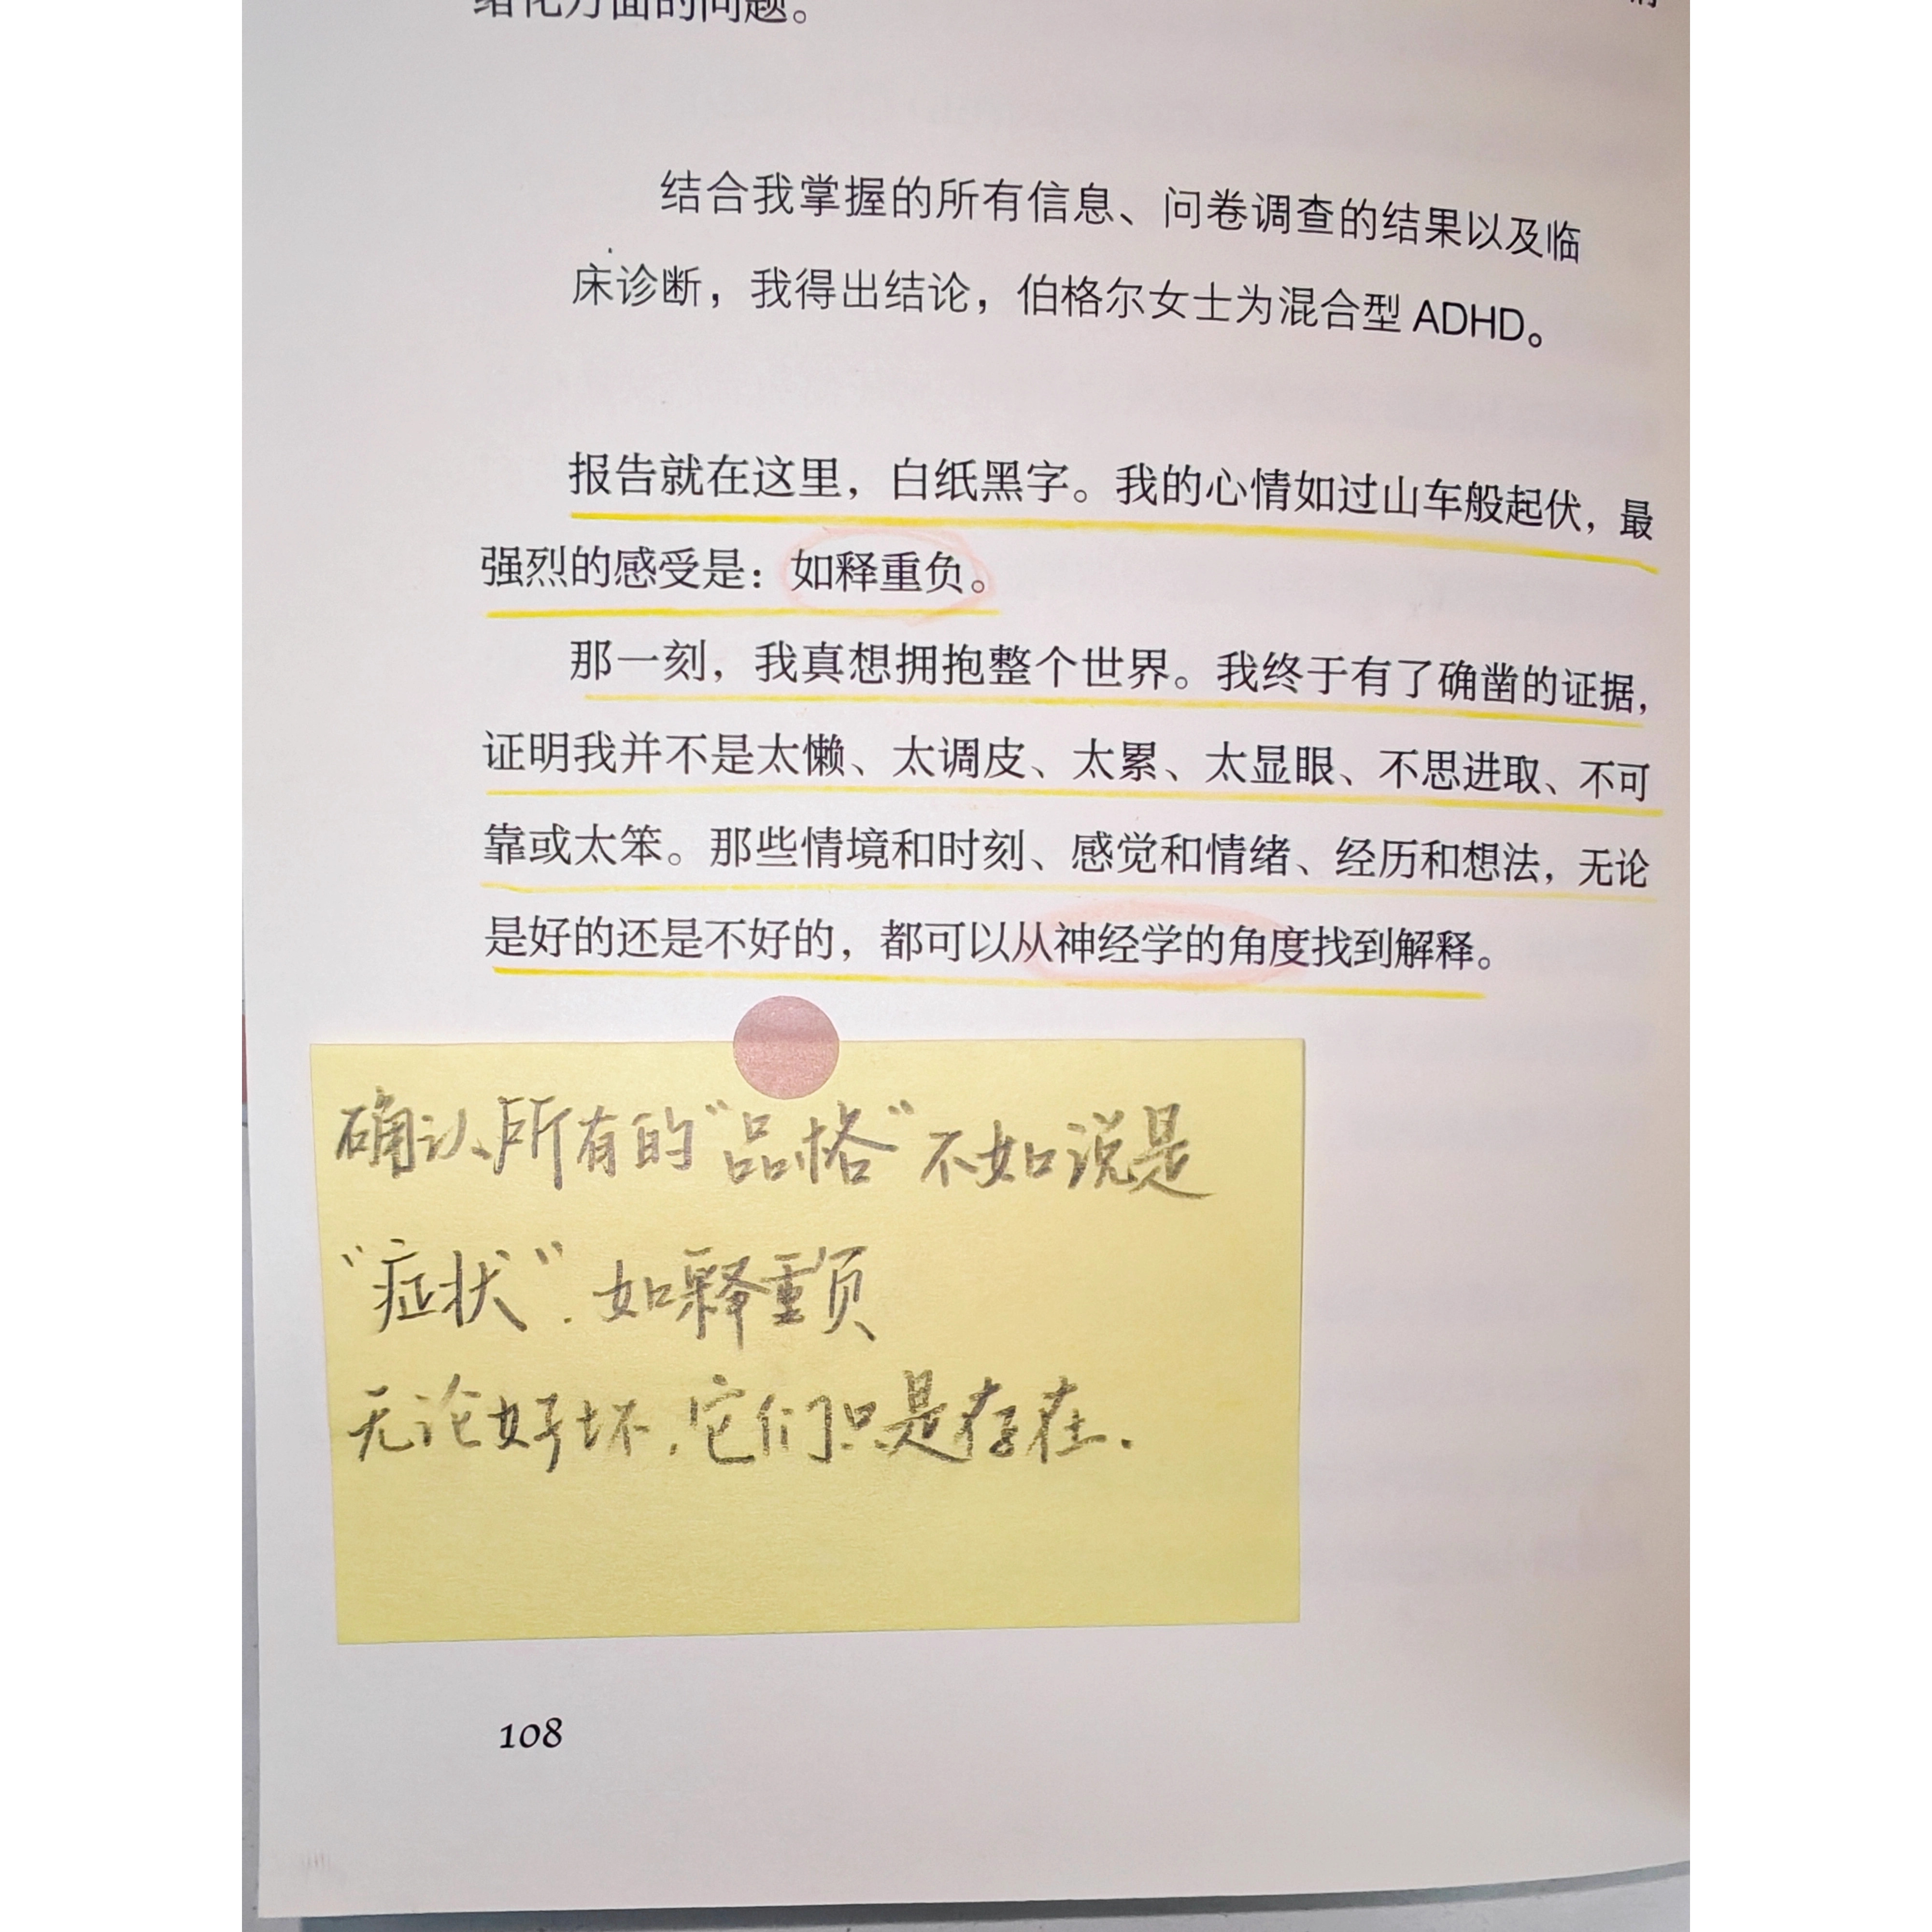 绪化方面的问题。
结合我掌握的所有信息、问卷调查的结果以及临
床诊断，我得出结论，伯格尔女士为混合型 ADHD。
报告就在这里，白纸黑字。我的心情如过山车般起伏，最
强烈的感受是：如释重负。
那一刻，我真想拥抱整个世界。我终于有了确凿的证据，
证明我并不是太懒、太调皮、太累、太显眼、不思进取、不可
靠或太笨。那些情境和时刻、感觉和情绪、经历和想法，无论
是好的还是不好的，都可以从神经学的角度找到解释。
确认所有的“品格”不如说是
“症状”. 如释重负
无论好坏, 它们只是存在.
108